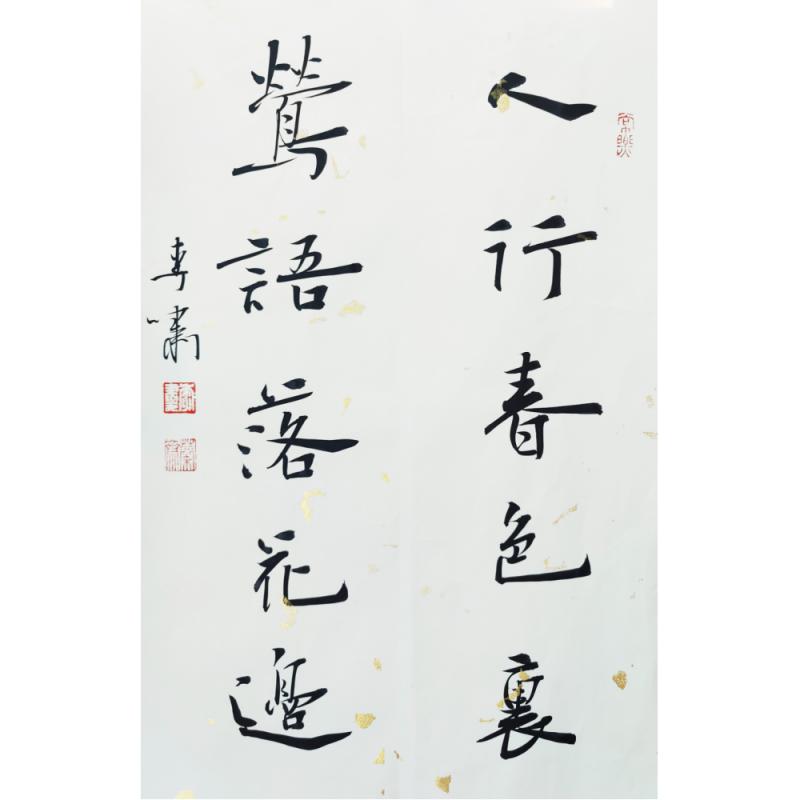 人行春色裏
鶯語落花邊